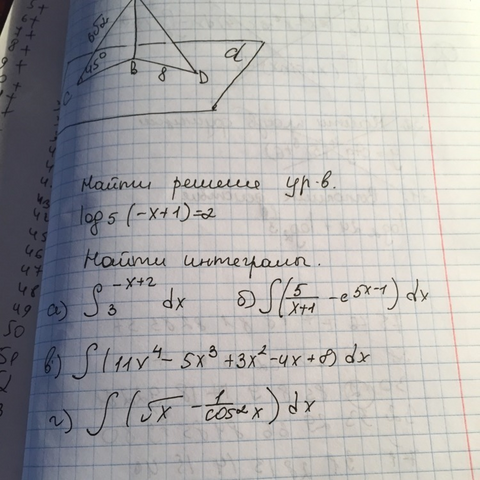 α
45°
B
8
D
Найти решение ур-в.
log₅(-x+1)=2
Найти интегралы.
а) ∫ 3^(-x+2) dx б) ∫(5/(x+1) - e^(5x-1)) dx
в) ∫(11x⁴ - 5x³ + 3x² - 4x + 8) dx
г) ∫(√x - 1/cos²x) dx
50